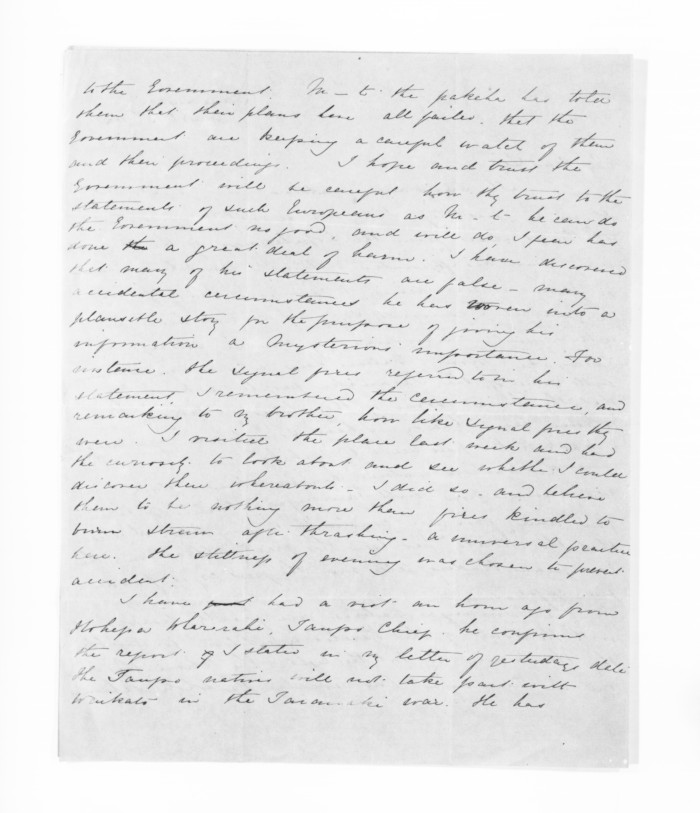 to the Government. M - t the pakeha has told
them that their plans have all failed. that the
Government are keeping a careful watch of them
and their proceedings. I hope and trust the
Government will be careful how they trust to the
statements of such Europeans as M - t - he can do
the Government no good, and will do, I fear has
done the a great deal of harm. I have discovered
that many of his statements are false - many
accidental circumstances he has woven into a
plausible story for the purpose of giving his
information a mysterious importance. For
instance. the signal fires referred to in his
statement, I remembered the circumstance, and
remarking to my brother, how like signal fires they
were. I visited the place last week and had
the curiosity to look about and see whether I could
discover their whereabouts - I did so. and believe
them to be nothing more than fires kindled to
burn straw after thrashing - a universal practice
here. the stillness of evening was chosen to prevent
accident.
I have just had a visit an hour ago from
Hohepa Taupo Chief. he confirms
the report I stated in my letter of yesterdays date
the Taupo natives will not take part with
Waikato in the Taranaki war. He has